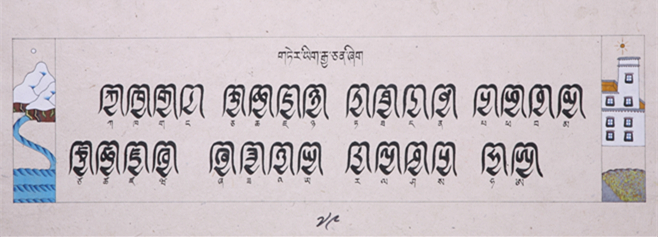 གཏེར་ཡིག་རྒྱ་ཅན་ཞིག
ཀ ཁ ག ང ཅ ཆ ཇ ཉ ཏ ཐ ད ན པ ཕ བ མ
ཙ ཚ ཛ ཝ ཞ ཟ འ ཡ ར ལ ཤ ས ཧ ཨ